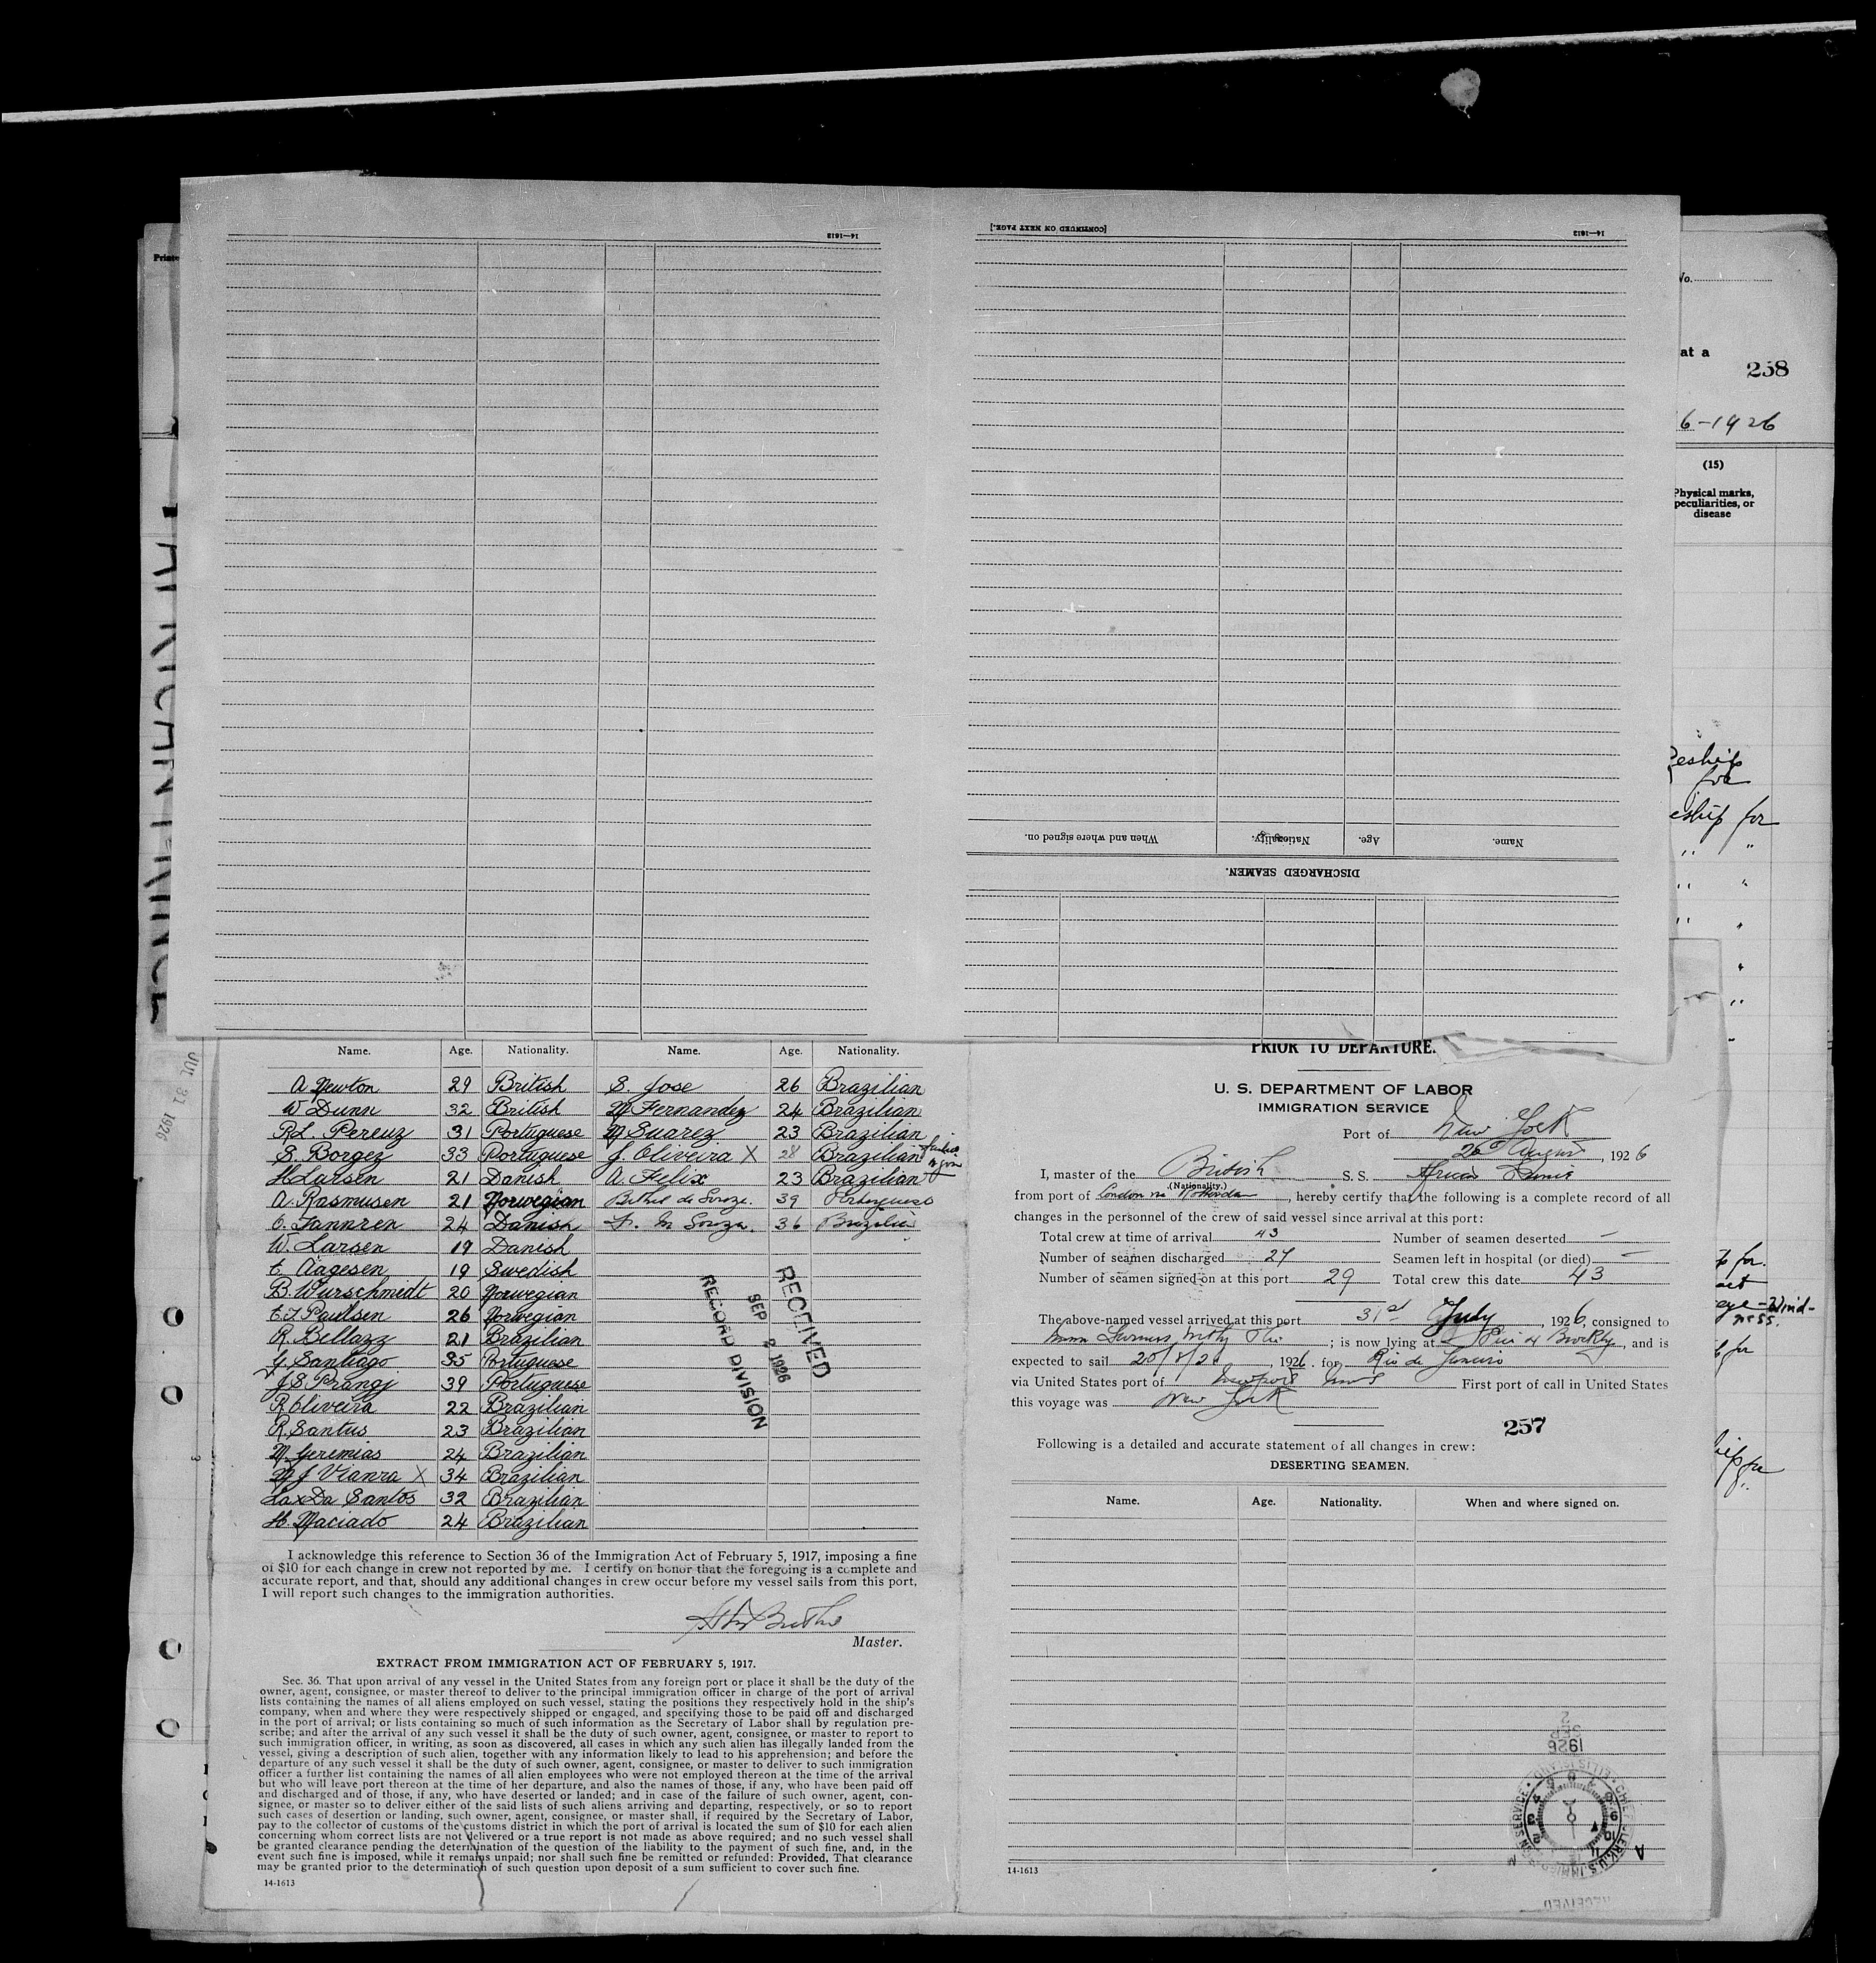 14—1612
[CONTINUED ON NEXT PAGE.]
14—1612
Name.
Age.
Nationality.
When and where signed on.
DISCHARGED SEAMEN.
Printe
No.
at a
258
6-1926
(15)
Physical marks,
peculiarities, or
disease
for
for
AFRICAN PRINCE
JUL 31 1926
Name. Age. Nationality. Name. Age. Nationality.
A Newton 29 British S. Jose 26 Brazilian
W Dunn 32 British M Fernandez 24 Brazilian
R.L. Pereuz 31 Portuguese M Suarez 23 Brazilian
S. Borgez 33 Portuguese J. Oliveira X 28 Brazilian
H Larsen 21 Danish A. Felix 23 Brazilian
A. Rasmusen 21 Norwegian Bethel de Souze. 39 Portuguese
O. Tannren 24 Danish M Souza. 36 Brazilian
W. Larsen 19 Danish
E. Aagesen 19 Swedish
B. Wurschmidt 20 Norwegian
E.J. Paulsen 26 Norwegian
R. Bellazz 21 Brazilian
G. Santiago 35 Portuguese
J.S. Prangj 39 Portuguese
R Oliveira 22 Brazilian
R. Santus 23 Brazilian
M. Geremias 24 Brazilian
M J Vianra X 34 Brazilian
Da Santos 32 Brazilian
H. Maciado 24 Brazilian
RECEIVED
SEP 2 1926
RECORD DIVISION
I acknowledge this reference to Section 36 of the Immigration Act of February 5, 1917, imposing a fine
of $10 for each change in crew not reported by me. I certify on honor that the foregoing is a complete and
accurate report, and that, should any additional changes in crew occur before my vessel sails from this port,
I will report such changes to the immigration authorities.
Master.
EXTRACT FROM IMMIGRATION ACT OF FEBRUARY 5, 1917.
Sec. 36. That upon arrival of any vessel in the United States from any foreign port or place it shall be the duty of the
owner, agent, consignee, or master thereof to deliver to the principal immigration officer in charge of the port of arrival
lists containing the names of all aliens employed on such vessel, stating the positions they respectively hold in the ship's
company, when and where they were respectively shipped or engaged, and specifying those to be paid off and discharged
in the port of arrival; or lists containing so much of such information as the Secretary of Labor shall by regulation pre-
scribe; and after the arrival of any such vessel it shall be the duty of such owner, agent, consignee, or master to report to
such immigration officer, in writing, as soon as discovered, all cases in which any such alien has illegally landed from the
vessel, giving a description of such alien, together with any information likely to lead to his apprehension; and before the
departure of any such vessel it shall be the duty of such owner, agent, consignee, or master to deliver to such immigration
officer a further list containing the names of all alien employees who were not employed thereon at the time of the arrival
but who will leave port thereon at the time of her departure, and also the names of those, if any, who have been paid off
and discharged and of those, if any, who have deserted or landed; and in case of the failure of such owner, agent, con-
signee, or master so to deliver either of the said lists of such aliens arriving and departing, respectively, or so to report
such cases of desertion or landing, such owner, agent, consignee, or master shall, if required by the Secretary of Labor,
pay to the collector of customs of the customs district in which the port of arrival is located the sum of $10 for each alien
concerning whom correct lists are not delivered or a true report is not made as above required; and no such vessel shall
be granted clearance pending the determination of the question of the liability to the payment of such fine, and, in the
event such fine is imposed, while it remains unpaid; nor shall such fine be remitted or refunded: Provided, That clearance
may be granted prior to the determination of such question upon deposit of a sum sufficient to cover such fine.
14-1613
PRIOR TO DEPARTURE.
U. S. DEPARTMENT OF LABOR
IMMIGRATION SERVICE
Port of New York
26 August, 1926
I, master of the British S. S. African Prince
(Nationality.)
from port of London via Rotterdam, hereby certify that the following is a complete record of all
changes in the personnel of the crew of said vessel since arrival at this port:
Total crew at time of arrival 43 Number of seamen deserted —
Number of seamen discharged 27 Seamen left in hospital (or died) —
Number of seamen signed on at this port 29 Total crew this date 43
The above-named vessel arrived at this port 31st July, 1926, consigned to
; is now lying at Pier 4 Brooklyn, and is
expected to sail , 1926. for Rio de Janeiro
via United States port of Newport News First port of call in United States
this voyage was New York
257
Following is a detailed and accurate statement of all changes in crew:
DESERTING SEAMEN.
Name. Age. Nationality. When and where signed on.
14-1613
SEP 2
1926
RECEIVED